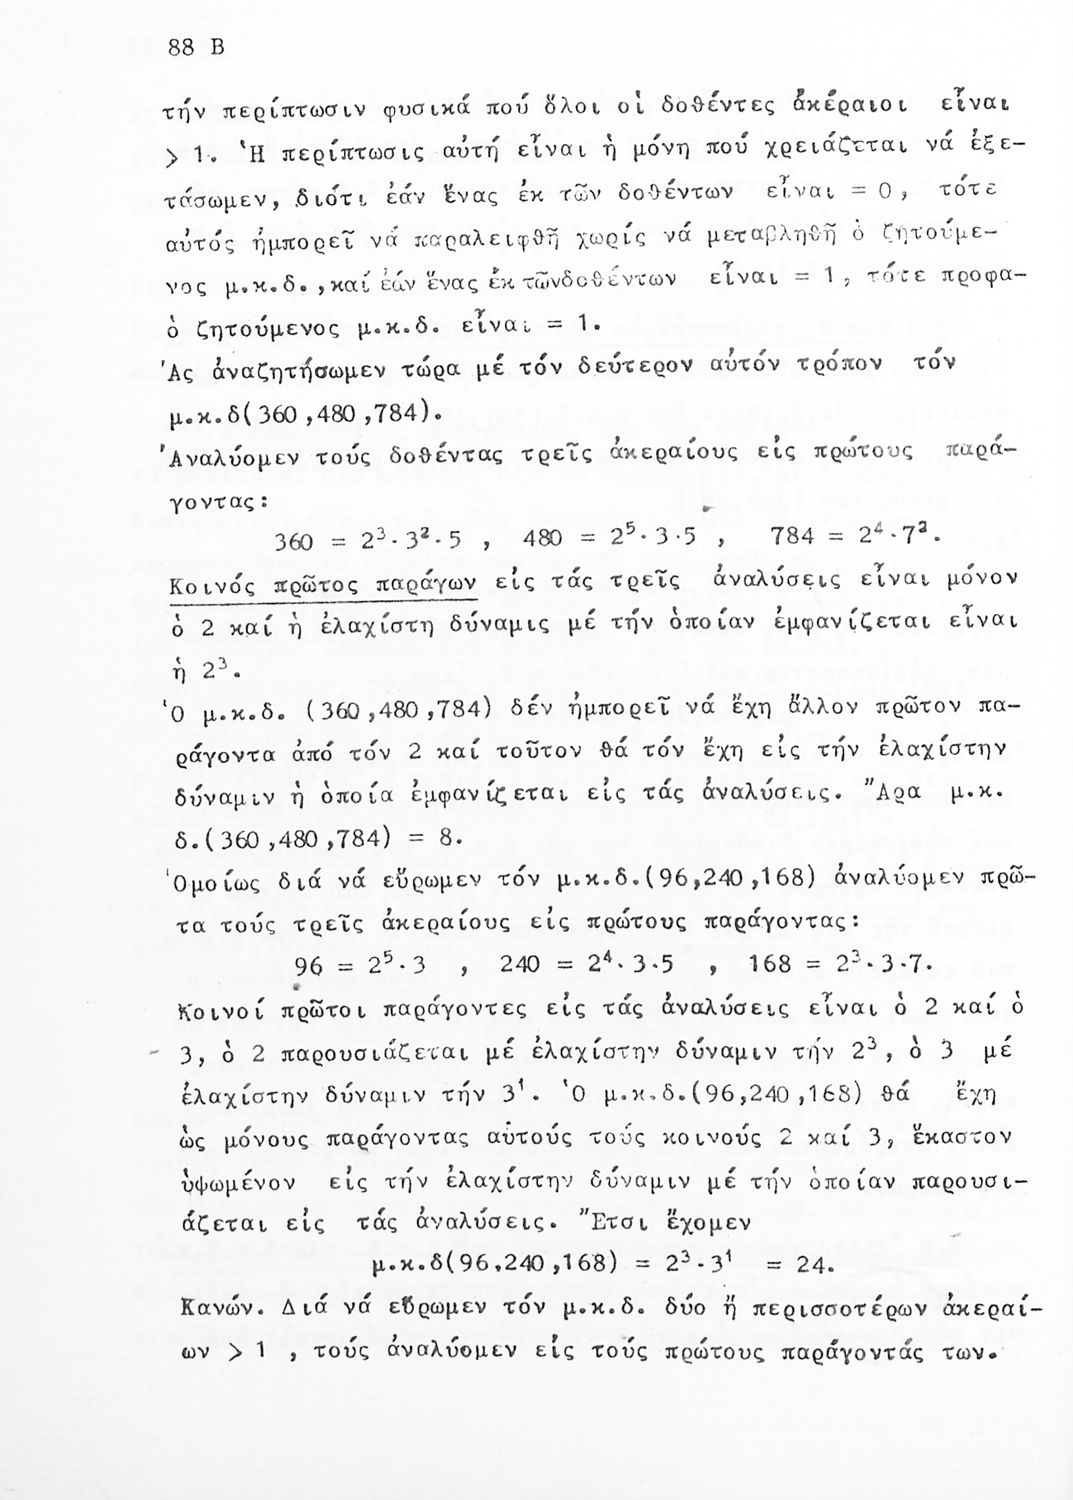 88 Β
τήν περίπτωσιν φυσικά πού ὅλοι οἱ δοθέντες ἀκέραιοι εἶναι
> 1. Ἡ περίπτωσις αὐτή εἶναι ἡ μόνη πού χρειάζεται νά ἐξε-
τάσωμεν, διότι ἐάν ἕνας ἐκ τῶν δοθέντων εἶναι = 0, τότε
αὐτός ἠμπορεῖ νά παραλειφθῆ χωρίς νά μεταβληθῆ ὁ ζητούμε-
νος μ.κ.δ.,καί ἐάν ἕνας ἐκ τῶνδοθέντων εἶναι = 1, τότε προφα-
ὁ ζητούμενος μ.κ.δ. εἶναι = 1.
Ἀς ἀναζητήσωμεν τώρα μέ τόν δεύτερον αὐτόν τρόπον τόν
μ.κ.δ(360,480,784).
Ἀναλύομεν τούς δοθέντας τρεῖς ἀκεραίους εἰς πρώτους παρά-
γοντας:
360 = 2³·3²·5 , 480 = 2⁵·3·5 , 784 = 2⁴·7².
Κοινός πρῶτος παράγων εἰς τάς τρεῖς ἀναλύσεις εἶναι μόνον
ὁ 2 καί ἡ ἐλαχίστη δύναμις μέ τήν ὁποίαν ἐμφανίζεται εἶναι
ἡ 2³.
Ὁ μ.κ.δ. (360,480,784) δέν ἠμπορεῖ νά ἔχη ἄλλον πρῶτον πα-
ράγοντα ἀπό τόν 2 καί τοῦτον θά τόν ἔχη εἰς τήν ἐλαχίστην
δύναμιν ἡ ὁποία ἐμφανίζεται εἰς τάς ἀναλύσεις. Ἄρα μ.κ.
δ.(360,480,784) = 8.
Ὁμοίως διά νά εὕρωμεν τόν μ.κ.δ.(96,240,168) ἀναλύομεν πρῶ-
τα τούς τρεῖς ἀκεραίους εἰς πρώτους παράγοντας:
96 = 2⁵·3 , 240 = 2⁴·3·5 , 168 = 2³·3·7.
Κοινοί πρῶτοι παράγοντες εἰς τάς ἀναλύσεις εἶναι ὁ 2 καί ὁ
3, ὁ 2 παρουσιάζεται μέ ἐλαχίστην δύναμιν τήν 2³, ὁ 3 μέ
ἐλαχίστην δύναμιν τήν 3¹. Ὁ μ.κ.δ.(96,240,168) θά ἔχη
ὡς μόνους παράγοντας αὐτούς τούς κοινούς 2 καί 3, ἕκαστον
ὑψωμένον εἰς τήν ἐλαχίστην δύναμιν μέ τήν ὁποίαν παρουσι-
άζεται εἰς τάς ἀναλύσεις. Ἔτσι ἔχομεν
μ.κ.δ(96,240,168) = 2³·3¹ = 24.
Κανών. Διά νά εὕρωμεν τόν μ.κ.δ. δύο ἤ περισσοτέρων ἀκεραί-
ων > 1 , τούς ἀναλύομεν εἰς τούς πρώτους παράγοντάς των.